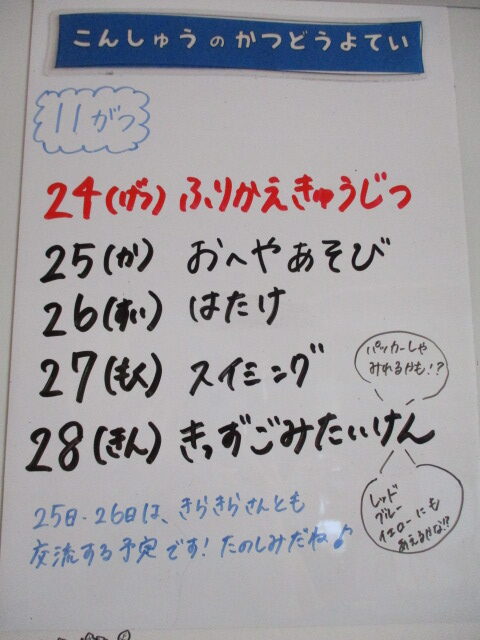 こんしゅうのかつどうよてい
11がつ
24(げつ) ふりかえきゅうじつ
25(か) おへやあそび
26(すい) はたけ
27(もく) スイミング
パッカーしゃ
みれるかも!?
28(きん) きっずごみたいけん
レッド
ブルー
イエローにも
あえるかな!?
25日・26日は、きらきらさんとも
交流する予定です!たのしみだね♪